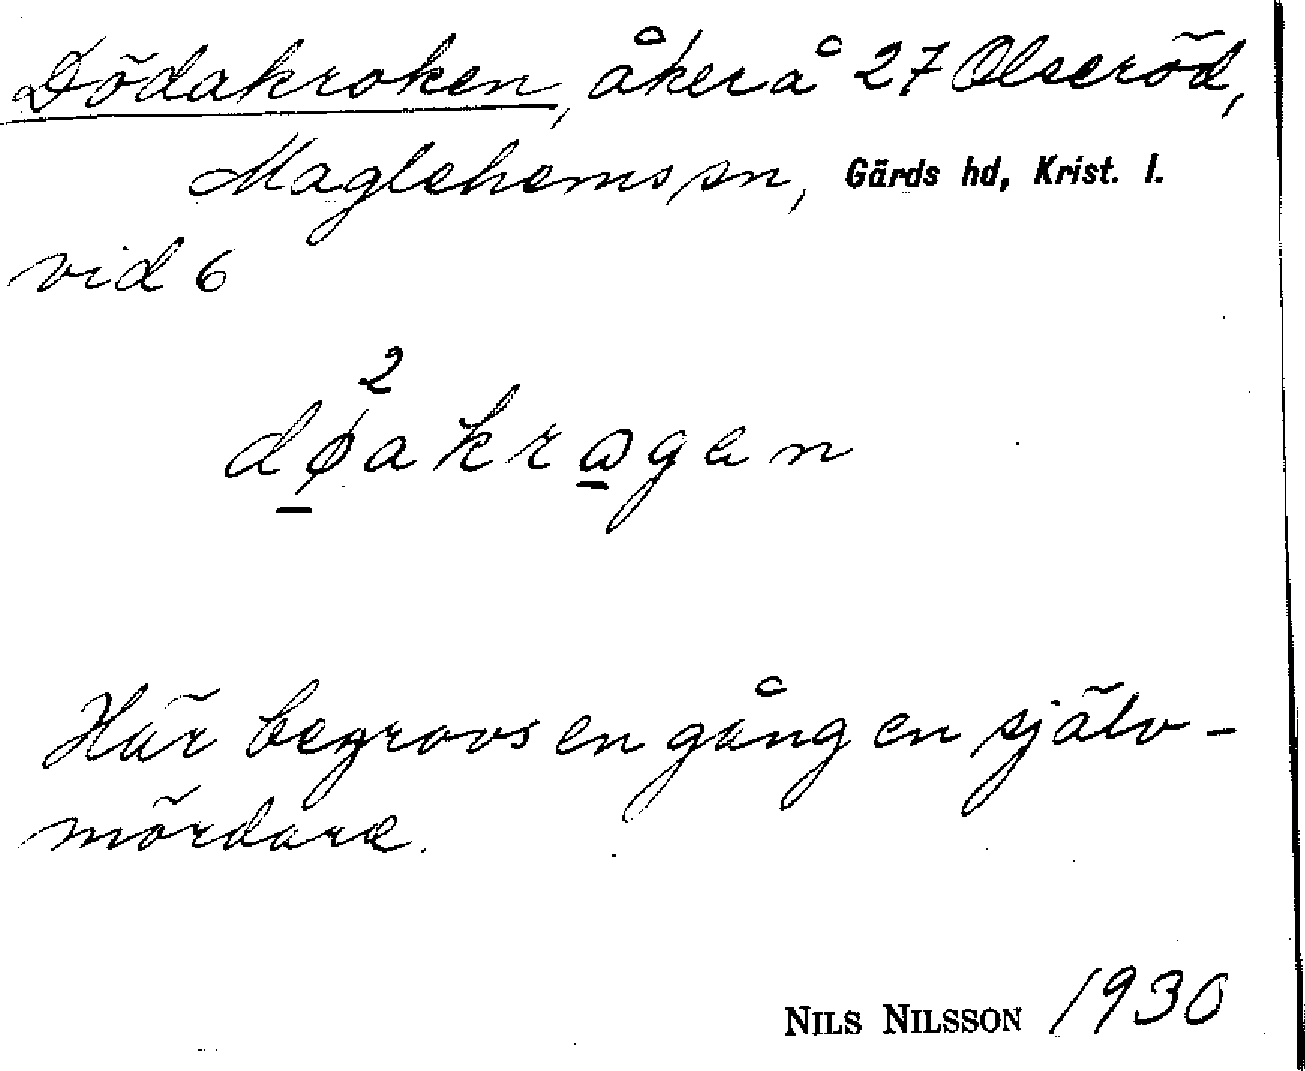 Dödakroken, åker å 27 Olseröd,
Maglehems sn, Gärds hd, Krist. l.
vid 6
2
døakrɷgen
Här begrovs en gång en själv-
mördare.
NILS NILSSON 1930